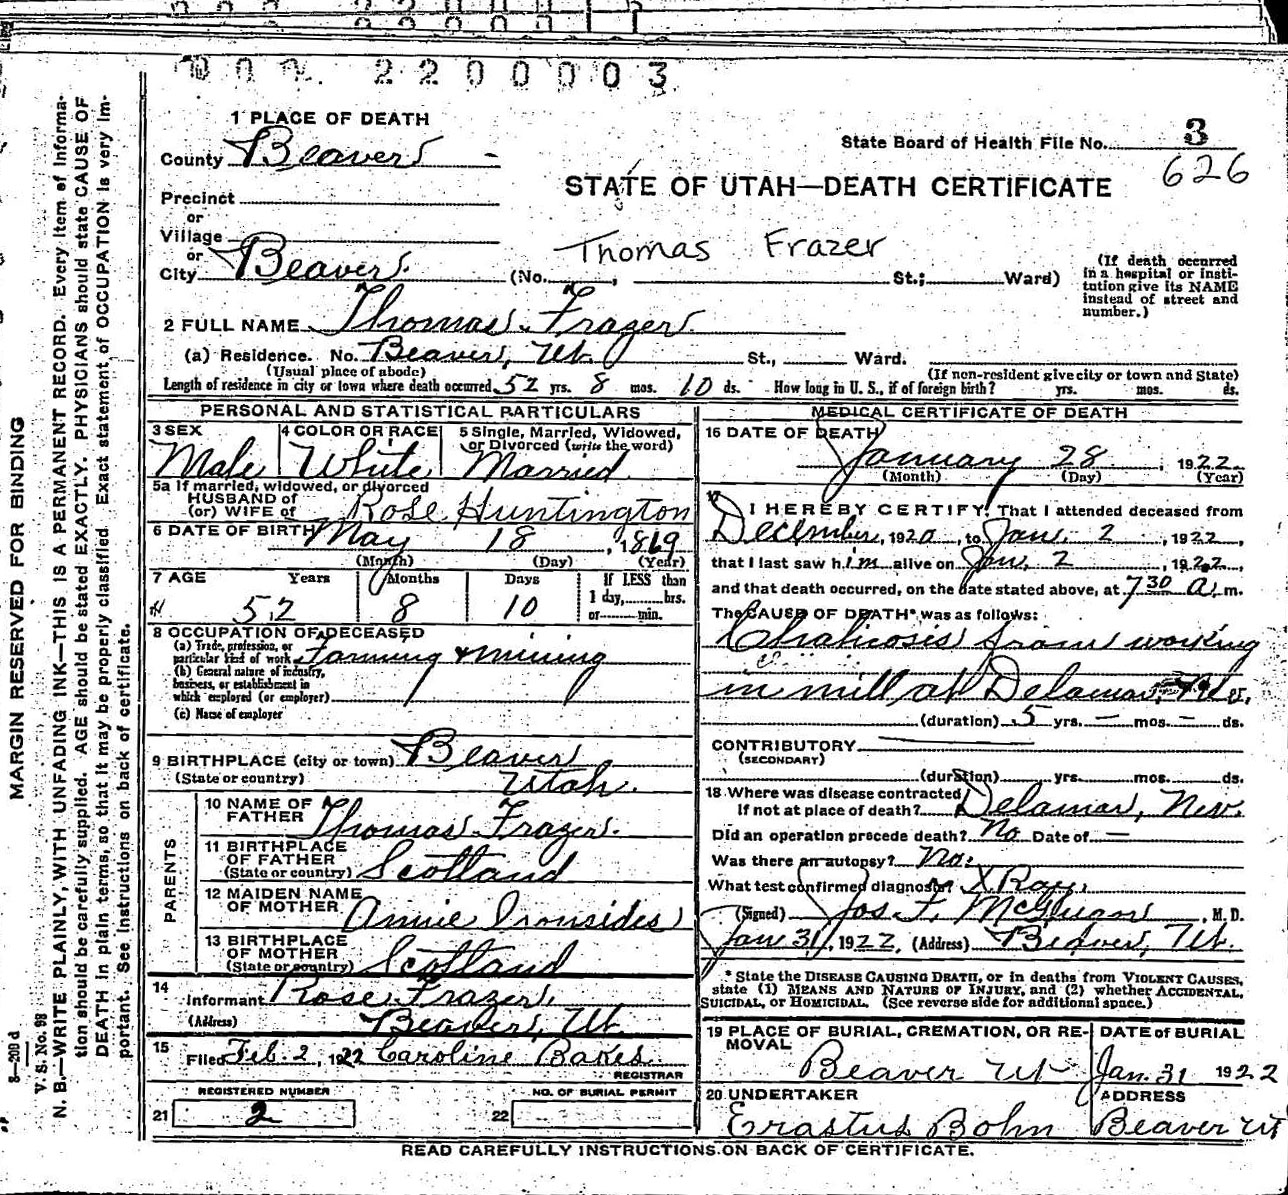 2200003
1 PLACE OF DEATH
County Beaver
State Board of Health File No. 3
626
STATE OF UTAH—DEATH CERTIFICATE
Precinct
or
Village
or
City Beaver (No. , St.; Ward)
Thomas Frazer
(If death occurred in a hospital or institution give its NAME instead of street and number.)
2 FULL NAME Thomas Frazer
(a) Residence. No. Beaver, Ut. St., Ward.
(Usual place of abode) (If non-resident give city or town and State)
Length of residence in city or town where death occurred 52 yrs. 8 mos. 10 ds. How long in U. S., if of foreign birth? yrs. mos. ds.
PERSONAL AND STATISTICAL PARTICULARS
3 SEX Male
4 COLOR OR RACE White
5 Single, Married, Widowed, or Divorced (write the word) Married
5a If married, widowed, or divorced
HUSBAND of
(or) WIFE of Rose Huntington
6 DATE OF BIRTH May 18, 1869
(Month) (Day) (Year)
7 AGE Years Months Days If LESS than
1 day, hrs.
52 8 10 or min.
8 OCCUPATION OF DECEASED
(a) Trade, profession, or
particular kind of work Farming & mining
(b) General nature of industry,
business, or establishment in
which employed (or employer)
(c) Name of employer
9 BIRTHPLACE (city or town) Beaver
(State or country) Utah.
PARENTS
10 NAME OF
FATHER Thomas Frazer.
11 BIRTHPLACE
OF FATHER
(State or country) Scotland
12 MAIDEN NAME
OF MOTHER Annie Ironsides
13 BIRTHPLACE
OF MOTHER
(State or country) Scotland
14
Informant Rose Frazer,
(Address) Beaver, Ut.
15
Filed Feb. 2, 1922 Caroline Bakes
REGISTRAR
REGISTERED NUMBER
21 2
NO. OF BURIAL PERMIT
22
MEDICAL CERTIFICATE OF DEATH
16 DATE OF DEATH
January 28, 1922
(Month) (Day) (Year)
17
I HEREBY CERTIFY, That I attended deceased from
December, 1920, to Jan. 2, 1922,
that I last saw him alive on Jan. 2, 1922,
and that death occurred, on the date stated above, at 7 30 A. m.
The CAUSE OF DEATH* was as follows:
Chalicosis from working
in mill at Delamar,
(duration) 5 yrs. — mos. — ds.
CONTRIBUTORY
(SECONDARY)
(duration) yrs. mos. ds.
18 Where was disease contracted
if not at place of death? Delamar, Nev.
Did an operation precede death? No Date of —
Was there an autopsy? No.
What test confirmed diagnosis? X Ray.
(Signed) Jos. F. , M. D.
Jan 31, 1922, (Address) Beaver, Ut.
* State the DISEASE CAUSING DEATH, or in deaths from VIOLENT CAUSES,
state (1) MEANS AND NATURE OF INJURY, and (2) whether ACCIDENTAL,
SUICIDAL, or HOMICIDAL. (See reverse side for additional space.)
19 PLACE OF BURIAL, CREMATION, OR REMOVAL
Beaver Ut
DATE OF BURIAL
Jan. 31 1922
20 UNDERTAKER
Erastus Bohn
ADDRESS
Beaver Ut
READ CAREFULLY INSTRUCTIONS ON BACK OF CERTIFICATE.
MARGIN RESERVED FOR BINDING
V. S. No. 98
N. B.—WRITE PLAINLY, WITH UNFADING INK—THIS IS A PERMANENT RECORD. Every item of information should be carefully supplied. AGE should be stated EXACTLY. PHYSICIANS should state CAUSE OF DEATH in plain terms, so that it may be properly classified. Exact statement of OCCUPATION is very important. See instructions on back of certificate.